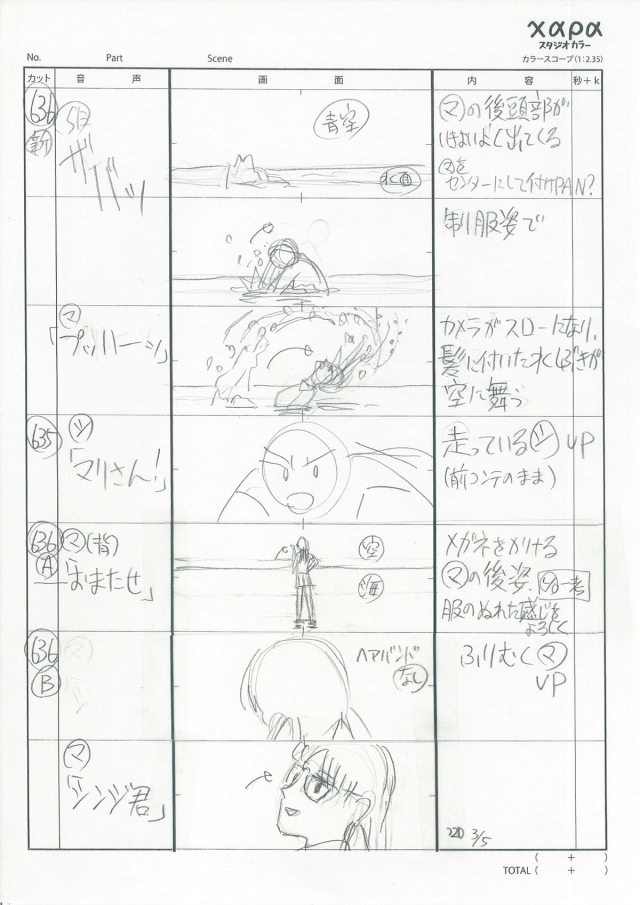 χαρα
スタジオカラー
カラースコープ(1:2.35)
No.
Part
Scene
カット
音 声
画 面
内 容
秒+k
636
新
ザバッ
青空
水面
マの後頭部が
いきおいよく出てくる
マをセンターにして付けPAN?
制服姿で
マ
「プッハーッ」
カメラがスローになり、
髪に付いた水しぶきが
空に舞う
635
シ
「マリさん!」
走っているシUP
(前コンテのまま)
636
A
マ(背)
「おまたせ」
空
海
メガネをかける
マの後姿、
服のぬれた感じを
よろしく
636
B
ヘアバンド
なし
ふりむくマ
UP
マ
「シンジ君」
220 3/5
( + )
TOTAL ( + )